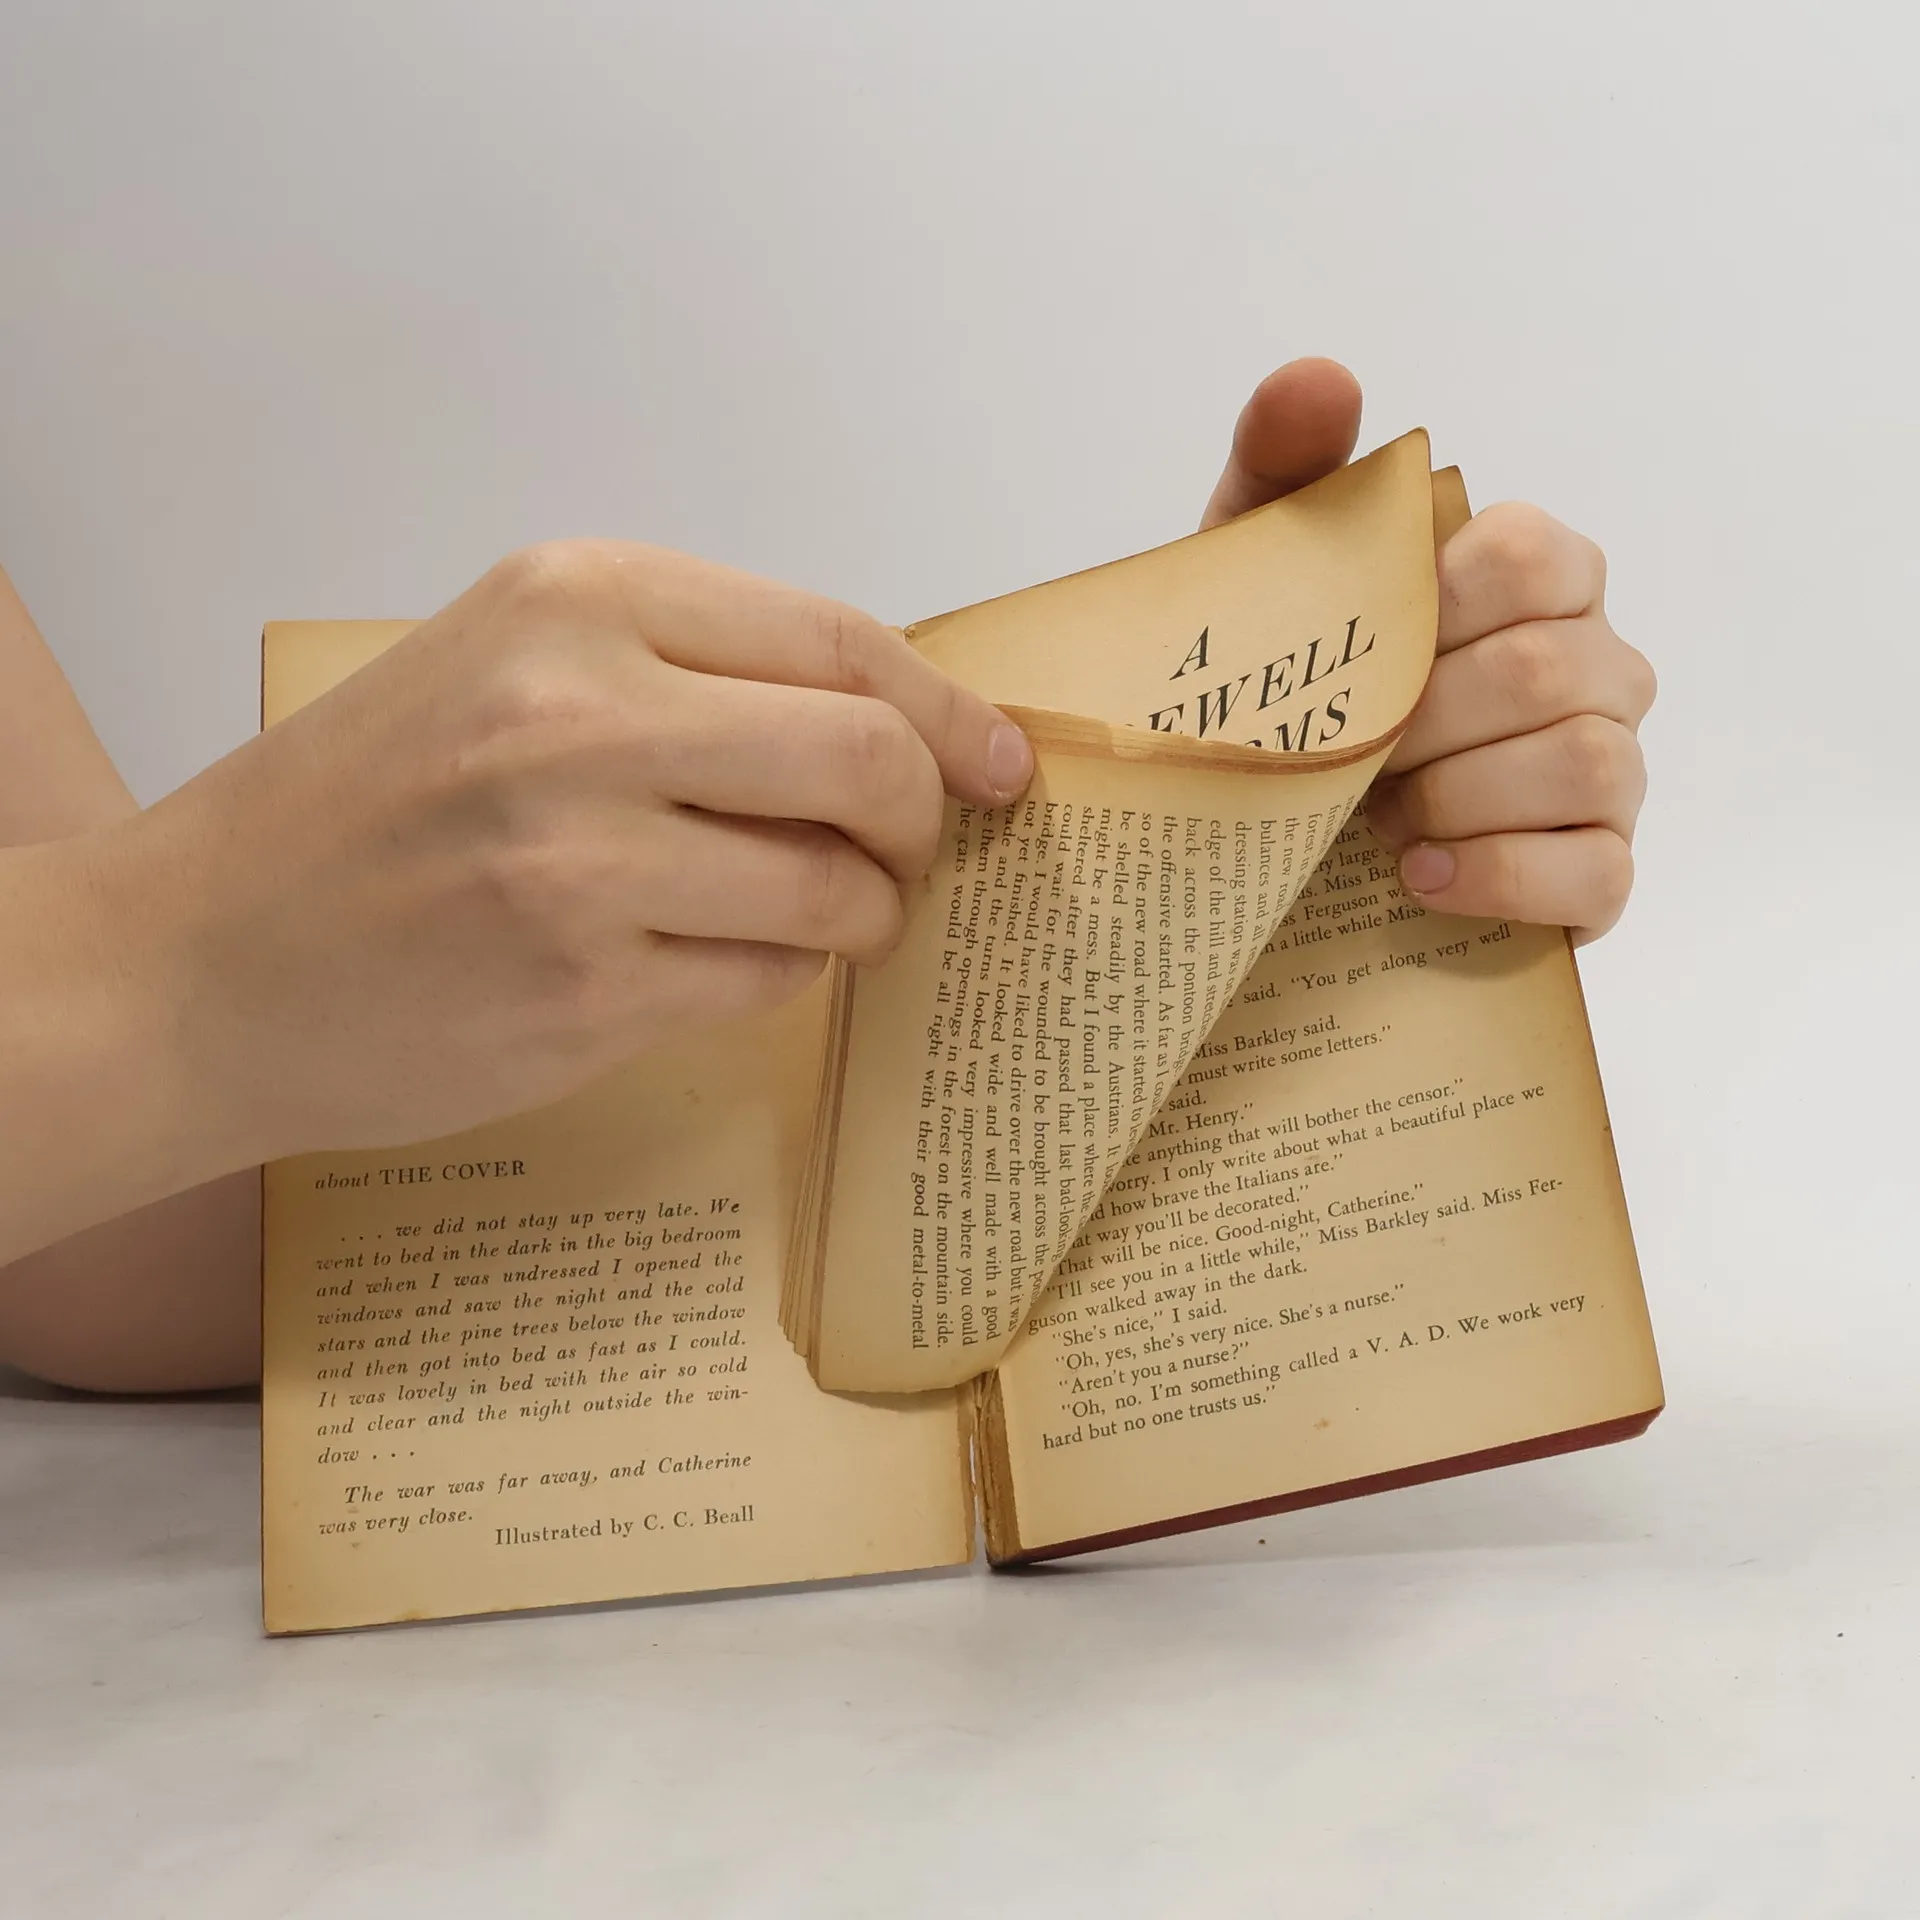 about THE COVER
. . . we did not stay up very late. We
went to bed in the dark in the big bedroom
and when I was undressed I opened the
windows and saw the night and the cold
stars and the pine trees below the window
and then got into bed as fast as I could.
It was lovely in bed with the air so cold
and clear and the night outside the win-
dow . . .
The war was far away, and Catherine
was very close.
Illustrated by C. C. Beall
A
EWELL
MS
forest in
the new road
bulances and all
dressing station was on
edge of the hill and
back across the pontoon
the offensive started. As far as I
so of the new road where it started to
be shelled steadily by the Austrians. It
might be a mess. But I found a place where the
sheltered after they had passed that last bad-looking
could wait for the wounded to be brought across the
bridge. I would have liked to drive over the new road but it was
not yet finished. It looked wide and well made with a good
rade and the turns looked very impressive where you could
e them through openings in the forest on the mountain side.
he cars would be all right with their good metal-to-metal
the
ry large
s. Miss Bar
ss Ferguson
n a little while Miss
said. "You get along very well
Miss Barkley said.
I must write some letters."
said.
Mr. Henry."
te anything that will bother the censor."
worry. I only write about what a beautiful place we
d how brave the Italians are."
at way you'll be decorated."
"That will be nice. Good-night, Catherine."
"I'll see you in a little while," Miss Barkley said. Miss Fer-
guson walked away in the dark.
"She's nice," I said.
"Oh, yes, she's very nice. She's a nurse."
"Aren't you a nurse?"
"Oh, no. I'm something called a V. A. D. We work very
hard but no one trusts us."